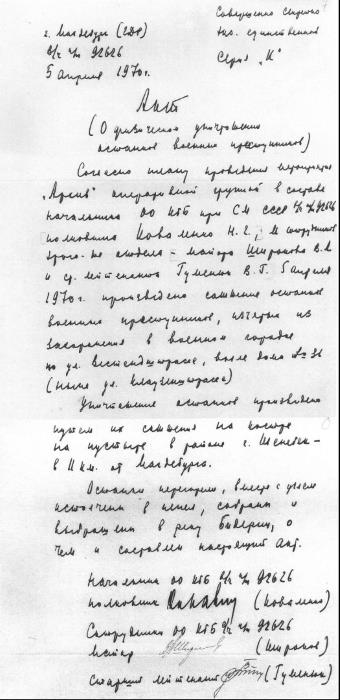 Совершенно секретно
экз. единственный
Серия „К“
г. Магдебург (ГДР)
в/ч п/п 92626
5 апреля 1970 г.
Акт
(О физическом уничтожении
останков военных преступников)
Согласно плану проведения мероприятия
„Архив“ оперативной группой в составе
начальника ОО КГБ при СМ СССР в/ч п/п 92626
полковника Коваленко Н.Г., и сотрудников
того же отдела – майора Широкова В.Н.
и ст. лейтенанта Гуменюк В.Г. 5 апреля
1970 г. произведено сожжение останков
военных преступников, изъятых из
захоронения в военном городке
по ул. Вестендштрассе, возле дома № 36
(ныне ул. Клаузенерштрассе)
Уничтожение останков произведено
путем их сожжения на костре
на пустыре в районе г. Шенебек –
в 11 км. от Магдебурга.
Останки перегорели, вместе с углем
истолчены в пепел, собраны и
выброшены в реку Бидериц, о
чем и составлен настоящий акт.
Начальник ОО КГБ в/ч п/п 92626
полковник (Коваленко)
Сотрудники ОО КГБ в/ч п/п 92626
Майор (Широков)
Старший лейтенант (Гуменюк)